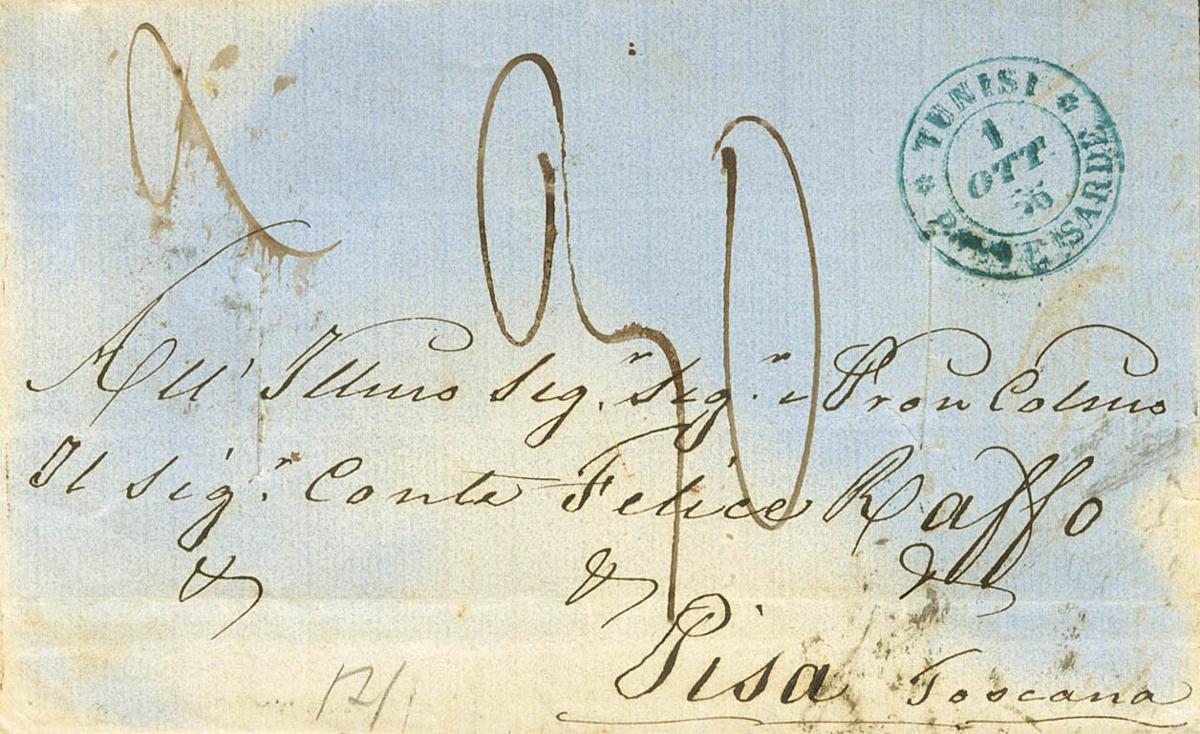 TUNISI
POSTE SARDE
1
OTT
55
All' Illmo Sig.r Sig.r e Pron Colmo
Il Sig.r Conte Felice Raffo
& & &
Pisa Toscana
12/